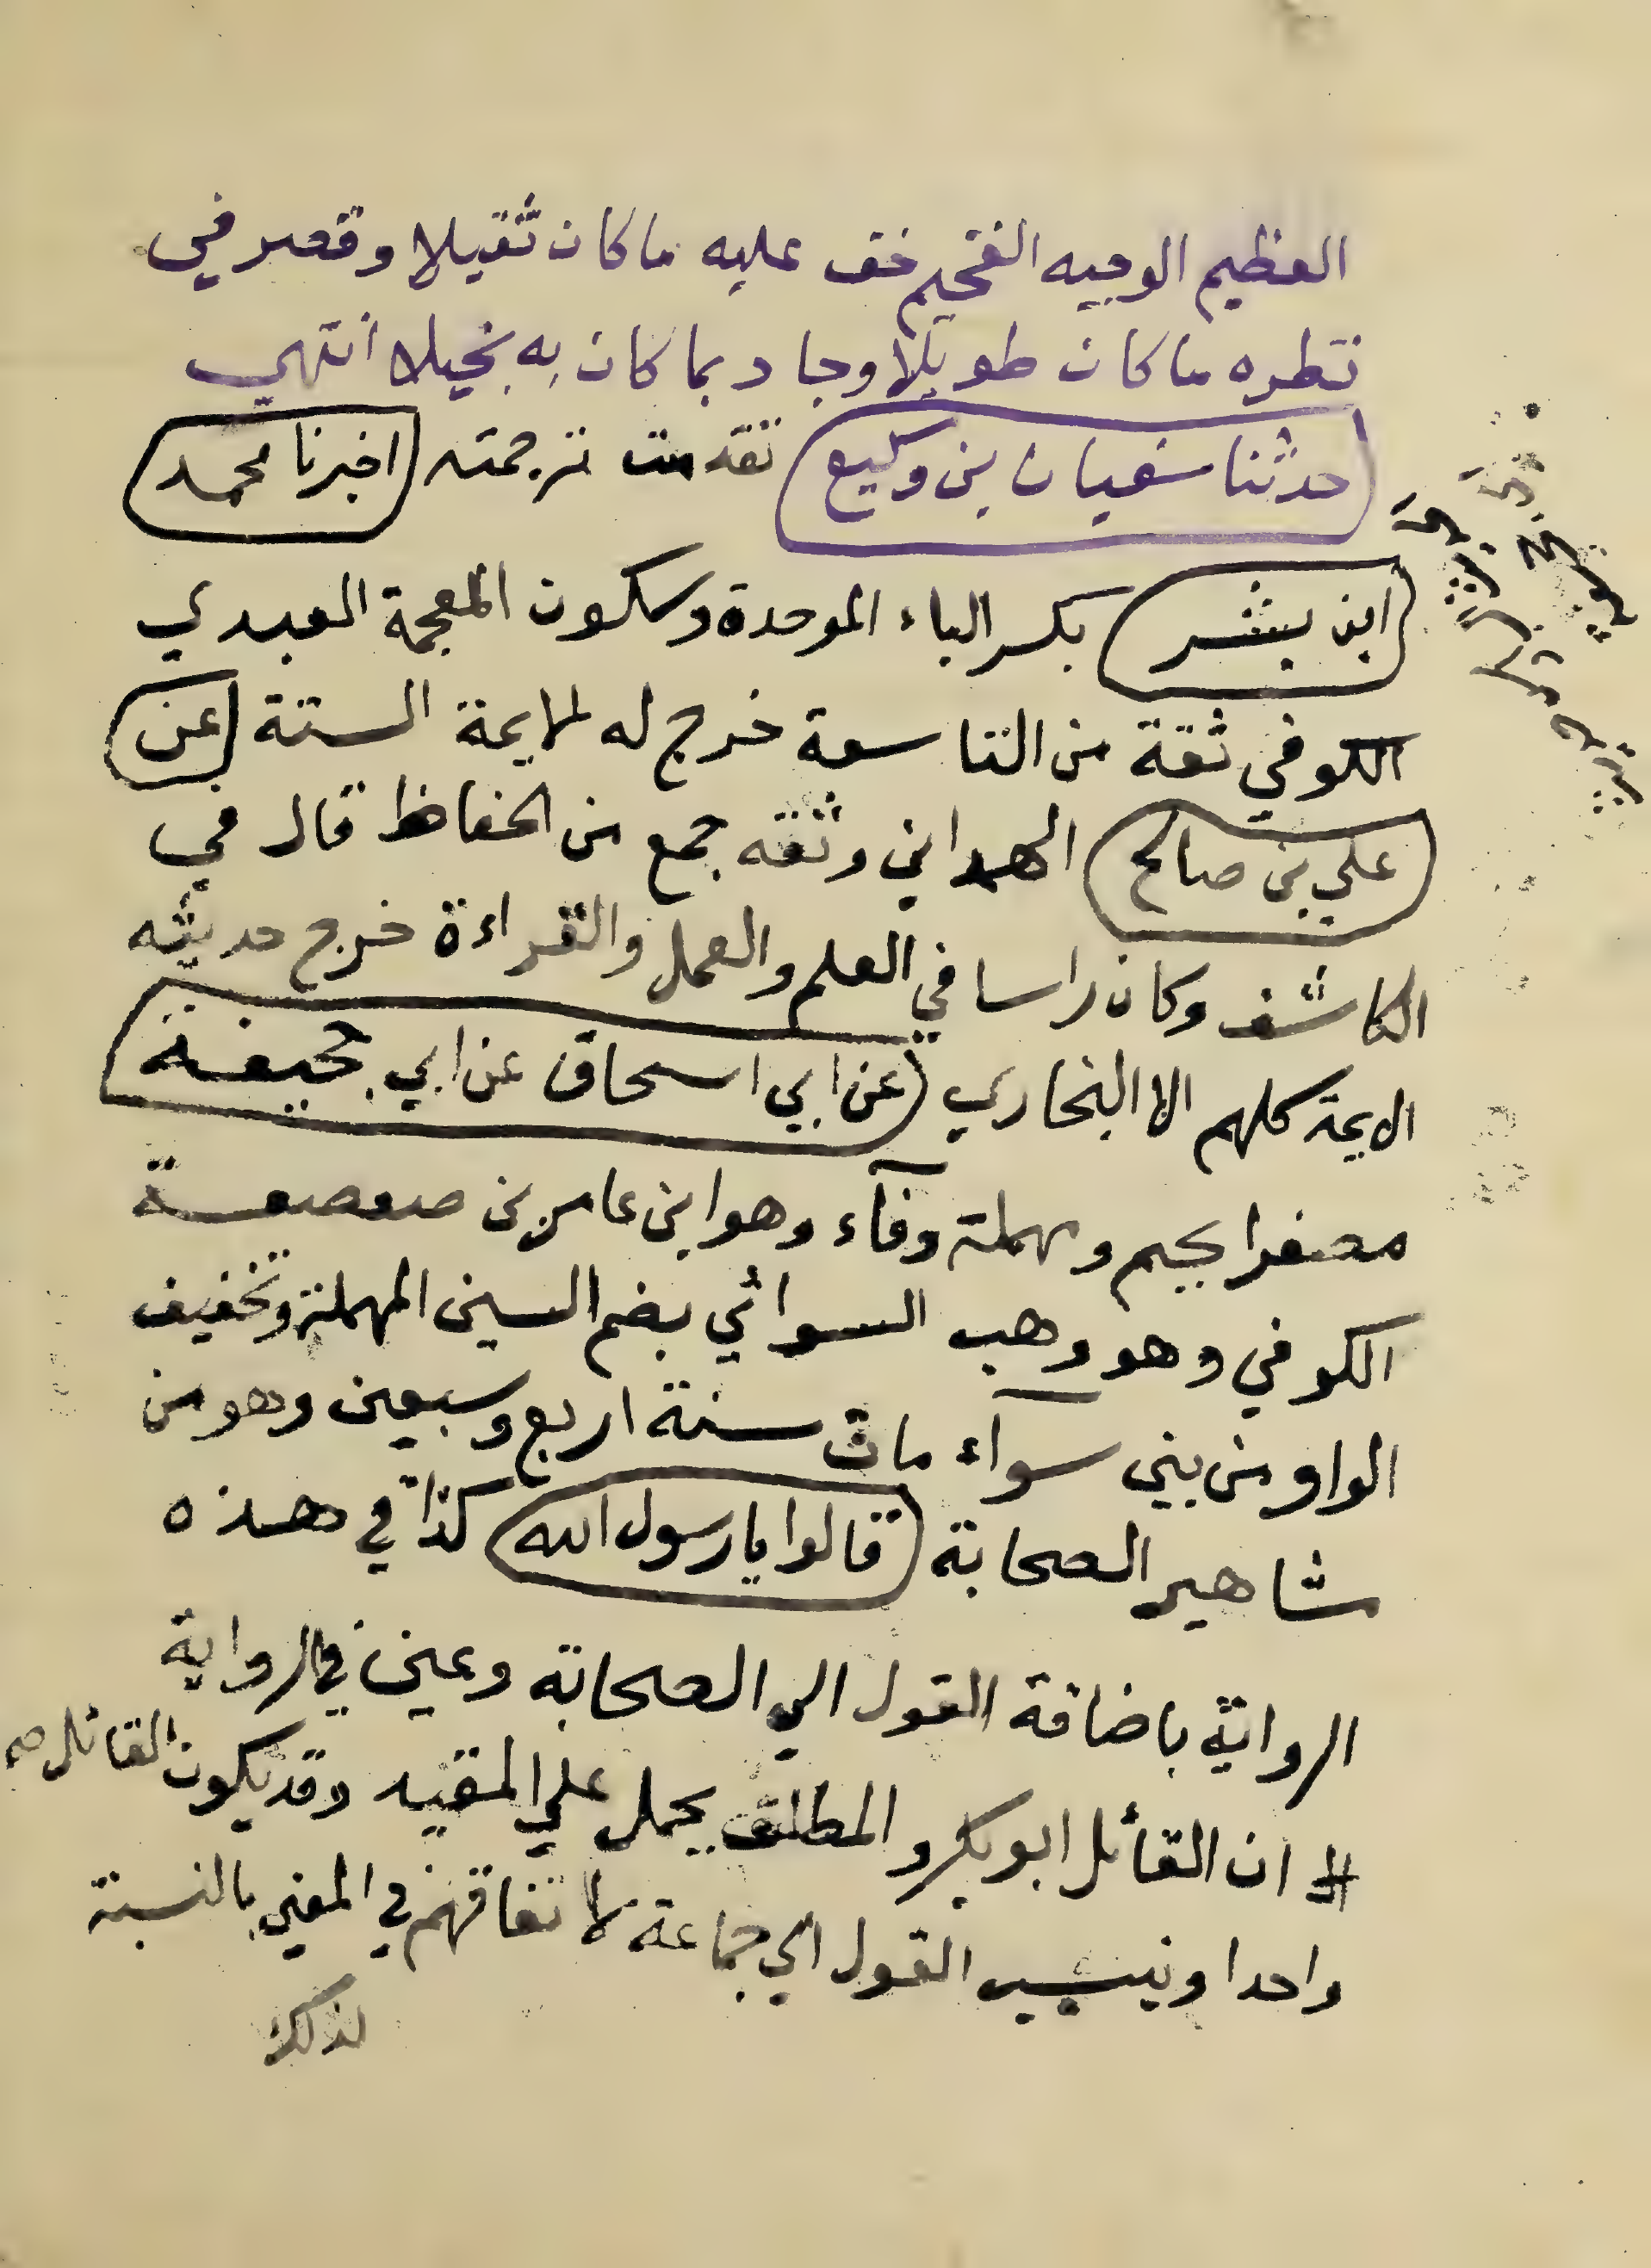 العظيم الوجيه الفخيم خف عليه ما كان ثقيلا وقصر في
نظره ما كان طويلا وجاد بما كان به بخيلا انتهي
حدثنا سفيان بن وكيع تقدمت ترجمته اخبرنا محمد
ابن بشر بكسر الباء الموحدة وسكون المعجمة العبدي
الكوفي ثقة من التاسعة خرج له الايمة الستة عن
علي بن صالح الهمداني وثقه جمع من الحفاظ قال في
الكاشف وكان راسا في العلم والعمل والقراءة خرج حديثه
الايمة كلهم الا البخاري عن ابي اسحاق عن ابي جحيفة
مصغرا بجيم ومهملة وفآء وهو ابن عامر بن صعصعة
الكوفي وهو وهب السوائي بضم السين المهملة وتخفيف
الواو من بني سوآء مات سنة اربع وسبعين وهو من
مشاهير الصحابة قالوا يا رسول الله كذا في هذه
الرواية باضافة القول الي الصحابة وعين في الرواية
ان القائل ابو بكر والمطلق يحمل علي المقيد وقد يكون القائل
واحدا وينسب القول الي جماعة لاتفاقهم في المعني بالنسبة
لذلك